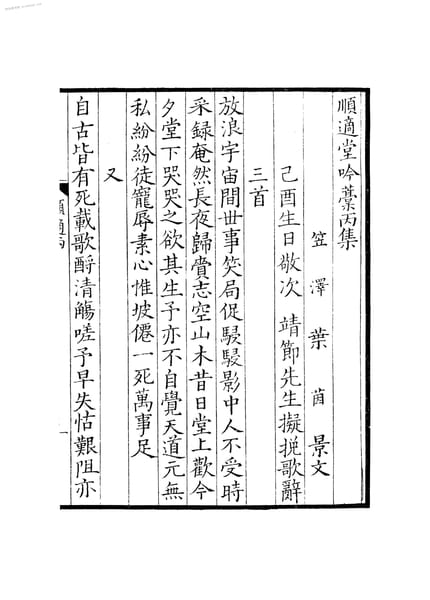 順適堂吟藁丙集
笠澤葉茵景文
己酉生日敬次 靖節先生擬挽歌辭
三首
放浪宇宙間世事笑局促駸駸影中人不受時
采録奄然長夜歸賫志空山木昔日堂上歡今
夕堂下哭哭之欲其生予亦不自覺天道元無
私紛紛徒寵辱素心惟坡僊一死萬事足
又
自古皆有死載歌酹清觴嗟予早失怙艱阻亦